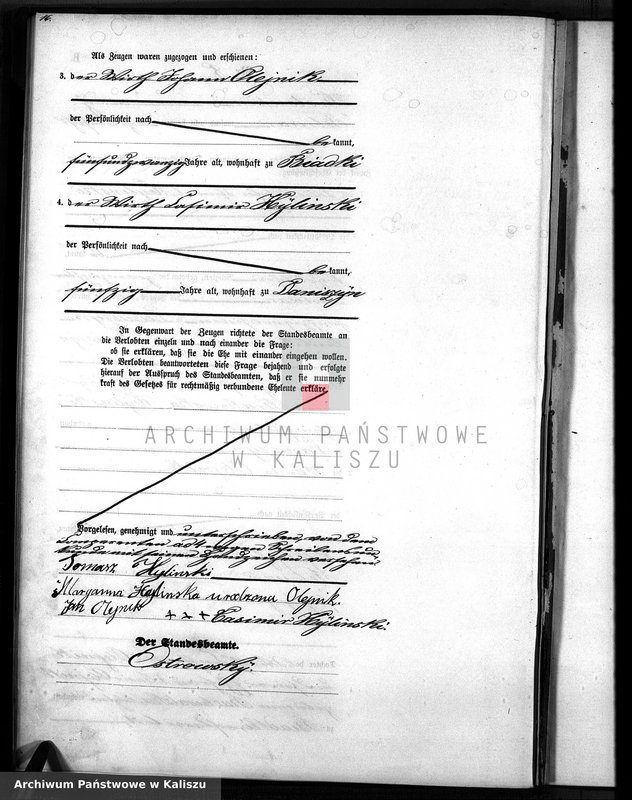 16.
Als Zeugen waren zugezogen und erschienen:
3. der Wirth Johann Olejnik
der Persönlichkeit nach
be kannt,
fünfundzwanzig Jahre alt, wohnhaft zu Biadki
4. der Wirth Casimir Hÿlinski
der Persönlichkeit nach
be kannt,
fünfzig Jahre alt, wohnhaft zu Daniszÿn
In Gegenwart der Zeugen richtete der Standesbeamte an
die Verlobten einzeln und nach einander die Frage:
ob sie erklären, daß sie die Ehe mit einander eingehen wollen.
Die Verlobten beantworteten diese Frage bejahend und erfolgte
hierauf der Ausspruch des Standesbeamten, daß er sie nunmehr
kraft des Gesetzes für rechtmäßig verbundene Eheleute erkläre.
ARCHIWUM PAŃSTWOWE
W KALISZU
Vorgelesen, genehmigt und unterschrieben von den
Comparenten ad 4 wegen Schreibens un
kunde mit seinen Handzeichen versehen
Tomasz Hylinski
Maryanna Hylinska urodzona Olejnik.
Jan Olejnik +++ Casimir Hÿlinski.
Der Standesbeamte.
Ostrowskÿ.
Archiwum Państwowe w Kaliszu